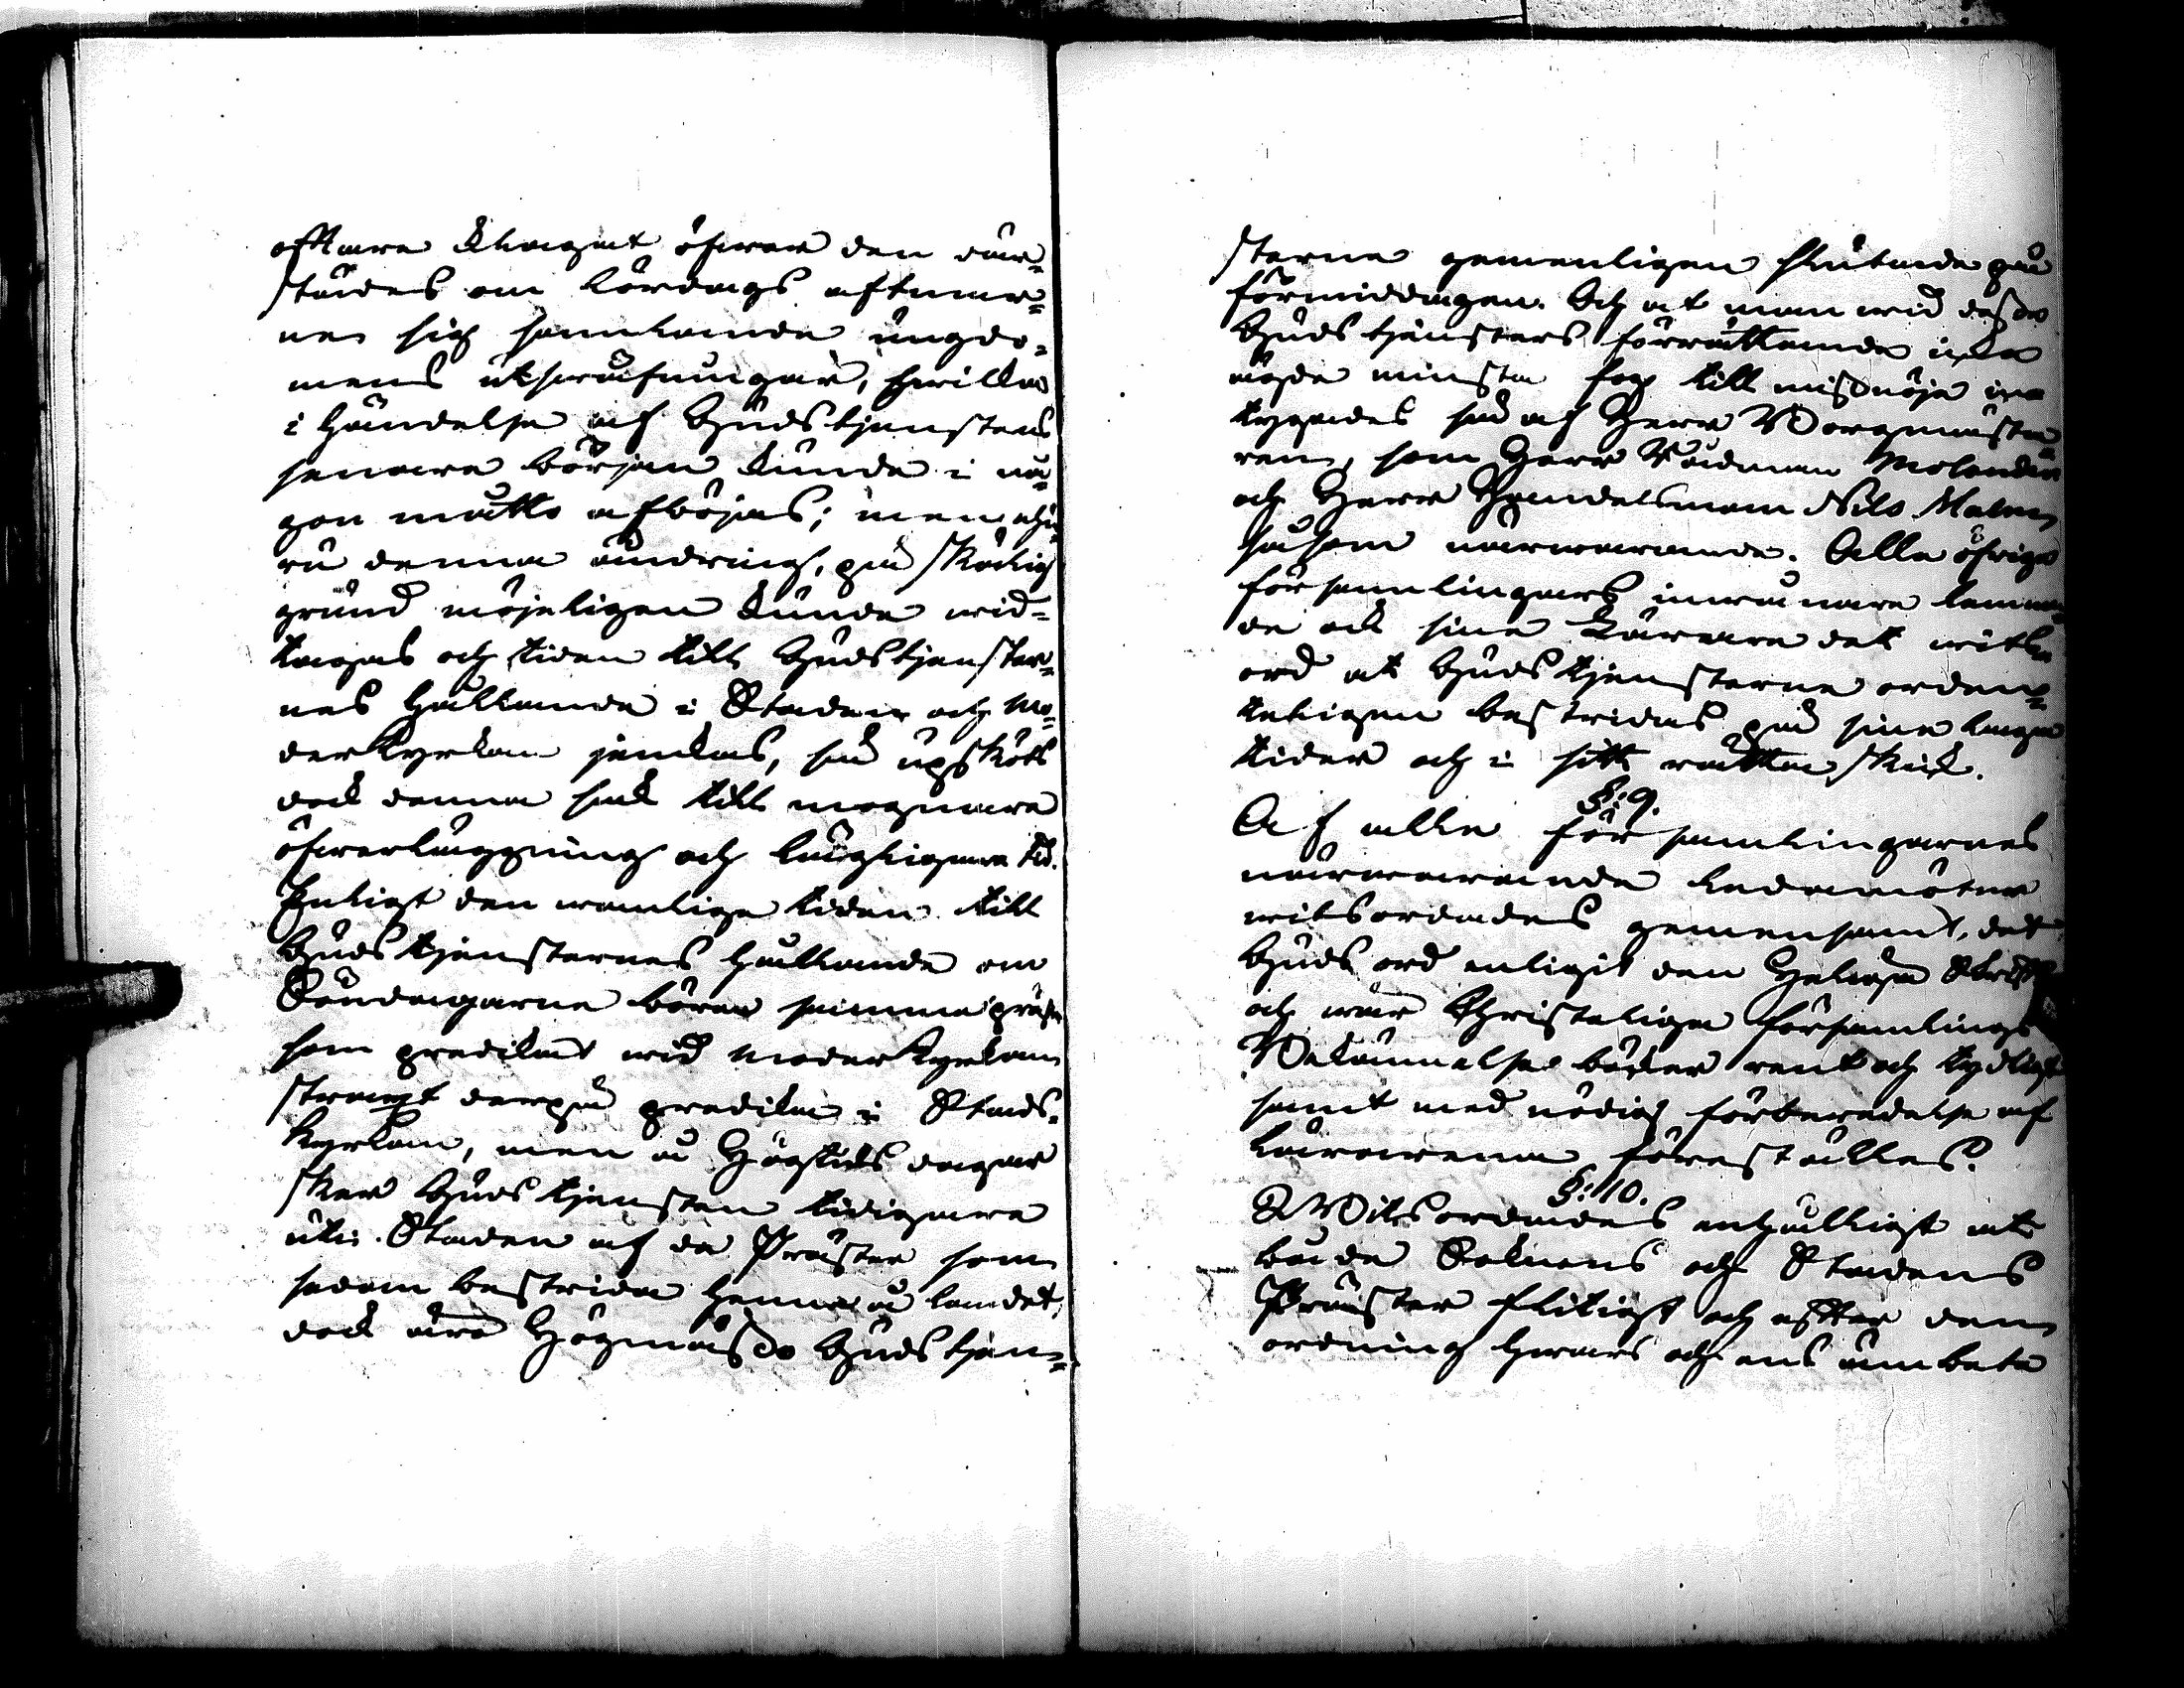 oftare klagat öfwer den där¬
städes om Lördags aftnar¬
ne sig samlande ungdo¬
mens utswäfningar, hwilka
i händelse af Gudstjenstens
senare början kunde i nå¬
gon måtto afböjas; men ehu¬
ru denna ändring, på skälig
grund möjeligen kunde wid¬
tagas och tiden till Gudstjenster¬
nes hållande i Staden och Mo¬
derkyrkan jemkas, så upsköts
dock denna sak till mognare
öfwerläggning och läglignare tid.
Enligt den wanliga tiden till
Gudstjensternes hållande om
Söndagarne böra samma präster
som predikat wid Moderkyrkan
straxt derpå predika i Stads¬
kyrkan, men å Högtids dagar
sker Gudstjensten tidigare
uti Staden af de Präster som
sedan bestrida henne å landet,
dock äro Högmässo Gudstjen¬
sterne gemenligen slutade på
förmiddagen. Och at man wid desse
Gudstjensters förrättande icke
ägde minsta fog till missnöje in¬
tygades så af Herr Borgmästa¬
ren, som Herr Rådman Molander
och Herr Handelsman Nils Malm
såsom närwarande. Alla öfrige
församlingars inwånare lemna¬
de ock sine Lärare det witts¬
ord at Gudstjensterne orden¬
teligen bestridas på sine laga
tider och i sitt rätta skick.
§: 9.
Af alle församlingarnes
närwarande Ledamöter
witsordades gemensamt, det
Guds ord enligit den Heliga Skrift
och wår Christeliga församlings
Bekännelse böcker rent och tydligt
samt med nödig förberedelse af
Lärarena föreställes.
§: 10.
Witsordades enhälligt at
både Soknens och Stadens
Präster flitigt och efter den
ordning hwars och ens ämbete